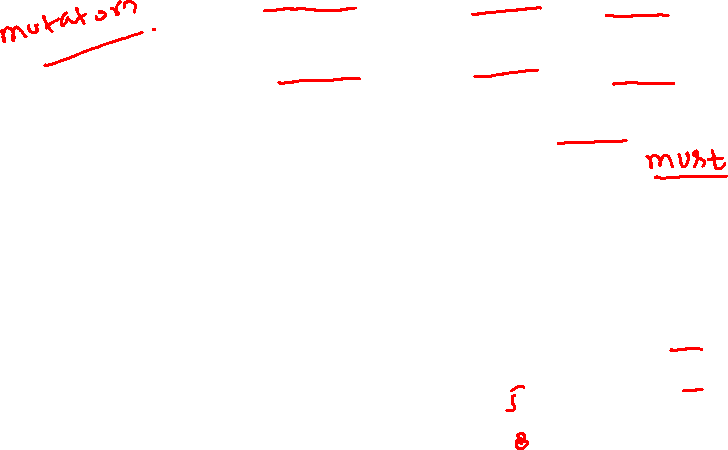 mutators
must
5
8